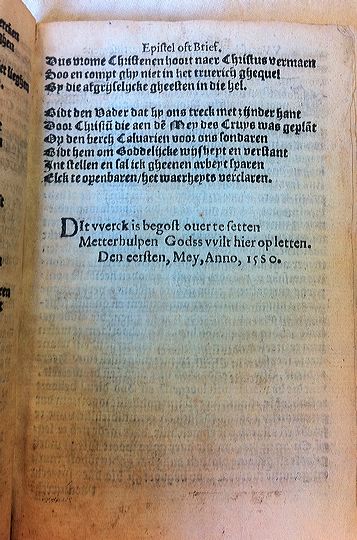 Epistel oft Brief.
Dus vrome Christenen hoort naer Christus vermaen
Soo en compt ghy niet in het truerich ghequel
By die afgrijselycke gheesten in die hel.
Bidt den Vader dat hy ons treck met zijnder hant
Door Christū die aen dē Mey des Cruys was geplāt
Op den berch Calvarien voor ons sondaren
Bidt hem om Goddelijcke wijsheyt en verstant
Int stellen en sal ick gheenen arbeyt sparen
Elck te openbaren/het waerheyts verclaren.
DIt vverck is begost ouer te setten
Metterhulpen Godss vvilt hier op letten.
Den eersten, Mey, Anno, 1580.